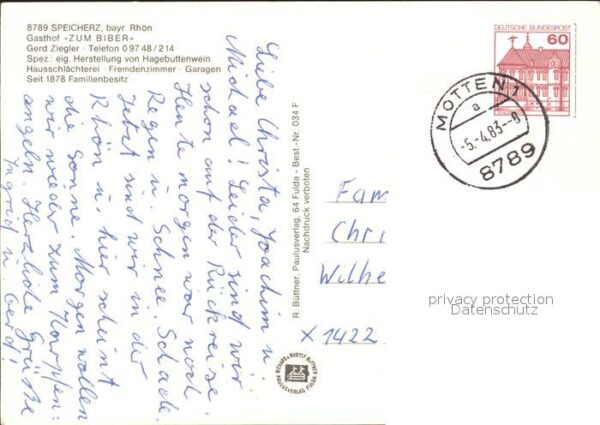 8789 SPEICHERZ, bayr. Rhön
Gasthof »ZUM BIBER«
Gerd Ziegler · Telefon 0 97 48 / 214
Spez.: eig. Herstellung von Hagebuttenwein
Hausschlächterei · Fremdenzimmer · Garagen
Seit 1878 Familienbesitz
Liebe Christa, Joachim u.
Michael! Leider sind wir
schon auf der Rückreise.
Heute morgen war noch
Regen u. Schnee. Schade.
Jetzt sind wir in der
Rhön u. hier scheint
die Sonne. Morgen wollen
wir wieder zum Karpfen=
angeln. Herzliche Grüße
Ingrid u. Gerd!
R. Büttner, Paulusverlag, 64 Fulda - Best.-Nr. 034 F
Nachdruck verboten
DEUTSCHE BUNDESPOST
60
MOTTEN 1
a
-5.-4.83--8
8789
Fam
Chri
Wilhe
X 1422
privacy protection
Datenschutz